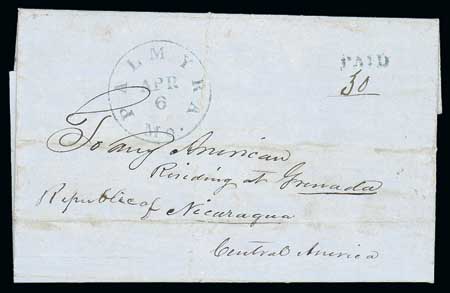 PALMYRA
APR
6
Mo.
PAID
30
To any American
Residing at Grenada
Republic of Nicaragua
Central America